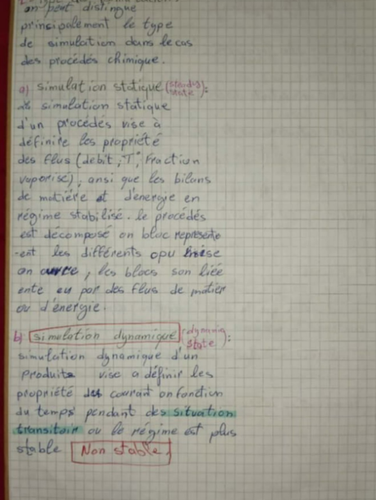 on peut distingue
principalement le type
de simulation dans le cas
des procédés chimique.
a) simulation statique (steady state):
la simulation statique
d'un procédés vise à
définire les propriété
des flus (debit, T°, Fraction
vaporisé), ansi que les bilans
de matiére et d'energie en
régime stabilisé. le procédés
est décomposé on bloc represente
les différents opu
on, les blocs son liée
ente eu par des flus de matier
ou d'énergie.
b) simulation dynamique (dynamic state):
simulation dynamique d'un
Produits vise a définir les
propriété des courant on fonction
du temps pendant des situation
transitoir ou le régime est plus
stable (Non stable)